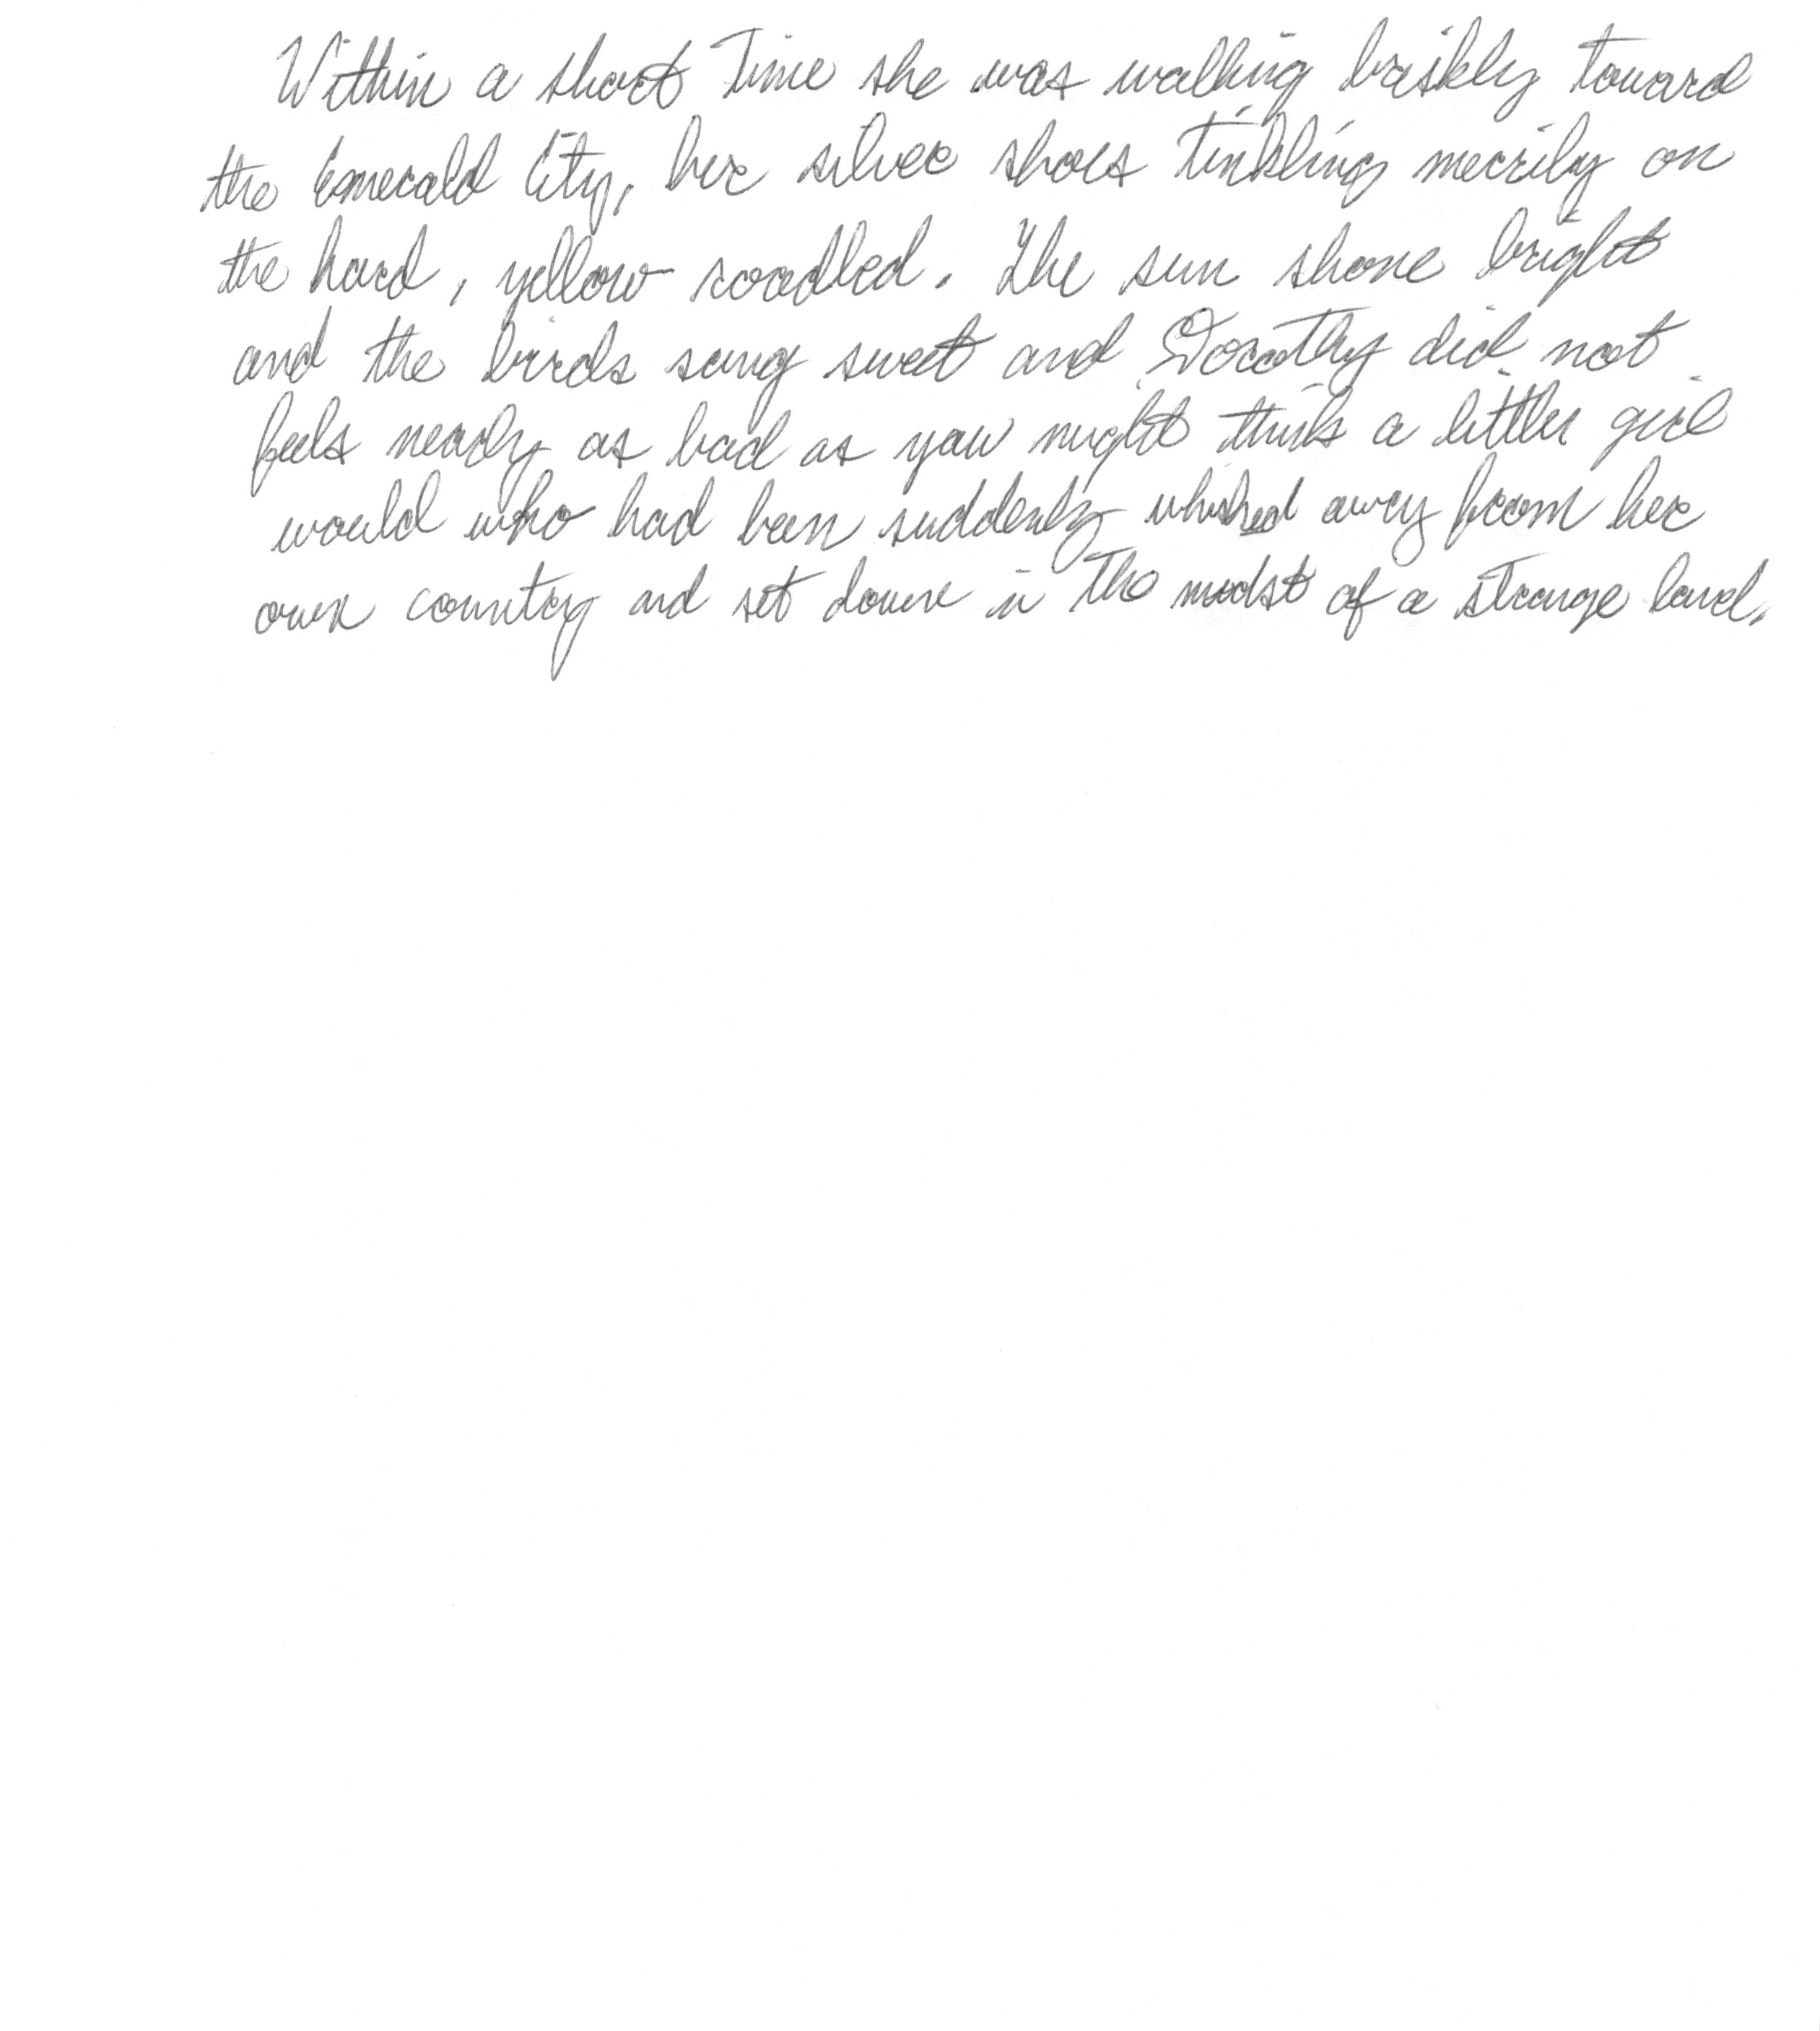 Within a short time she was walking briskly toward
the Emerald City, her silver shoes tinkling merrily on
the hard, yellow roadbed. The sun shone bright
and the birds sang sweet and Dorothy did not
feels nearly as bad as you might think a little girl
would who had been suddenly whisked away from her
own country and set down in the midst of a strange land.